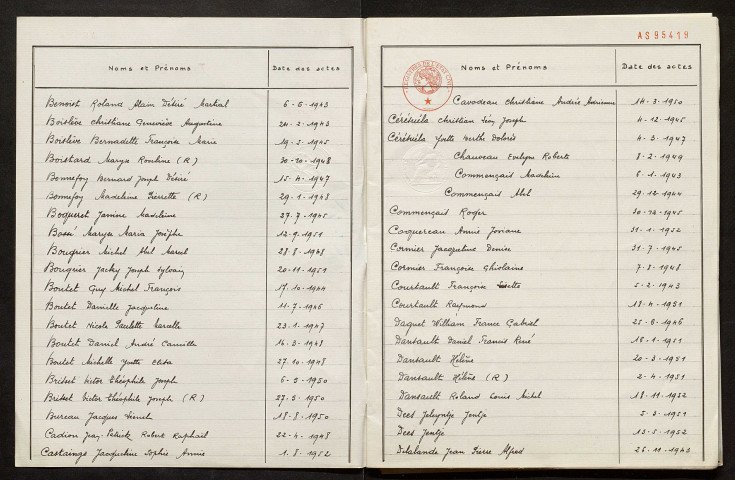 Noms et Prénoms Date des actes
Benoist Roland Alain Désiré Martial 6-6-1943
Boistève Christiane Geneviève Augustine 24-2-1943
Boistève Bernadette Françoise Marie 19-5-1945
Boistard Maryse Rouline (R) 30-10-1948
Bonnefoy Bernard Joseph Désiré 15-4-1947
Bonnefoy Madeleine Pierrette (R) 29-1-1948
Boqueret Janine Madeleine 27-7-1945
Bossé Maryse Maria Josèphe 12-9-1951
Bougrier Michel Abel Marcel 28-8-1948
Bougrier Jacky Joseph Sylvain 20-11-1951
Boutet Guy Michel François 17-10-1944
Boutet Danielle Jacqueline 11-7-1946
Boutet Nicole Paulette Marcelle 23-1-1947
Boutet Daniel André Camille 14-3-1948
Boutet Michelle Yvette Elisa 27-10-1948
Brisset Victor Théophile Joseph 6-5-1950
Brisset Victor Théophile Joseph (R) 27-5-1950
Bureau Jacques 18-8-1950
Cadiou Jean-Patrick Robert Raphaël 22-4-1948
Castaings Jacqueline Sophie Annie 1-8-1952
AS95419
Noms et Prénoms Date des actes
Cavodeau Christiane Andrée 14-3-1950
Céréhiéla Christian Léon Joseph 4-12-1945
Céréhiéla Yvette Berthe Dolorès 4-3-1947
Chauveau Evelyne Roberte 8-2-1949
Commençais Madeleine 6-1-1943
Commençais Abel 29-12-1944
Commençais Roger 30-12-1945
Coquereau Annie Josiane 31-1-1952
Cormier Jacqueline Denise 31-7-1945
Cormier Françoise Ghislaine 7-8-1948
Courtault Françoise Lisette 5-2-1943
Courtault Raymond 18-4-1951
Daguet William France Gabriel 25-6-1946
Dansault Daniel Francis René 16-1-1951
Dansault Hélène 20-3-1951
Dansault Hélène (R) 2-4-1951
Dansault Roland Louis Michel 18-11-1952
Dees Jeleyntje Jentje 5-3-1951
Dees Jentje 13-5-1952
Delalande Jean Pierre Alfred 25-11-1943